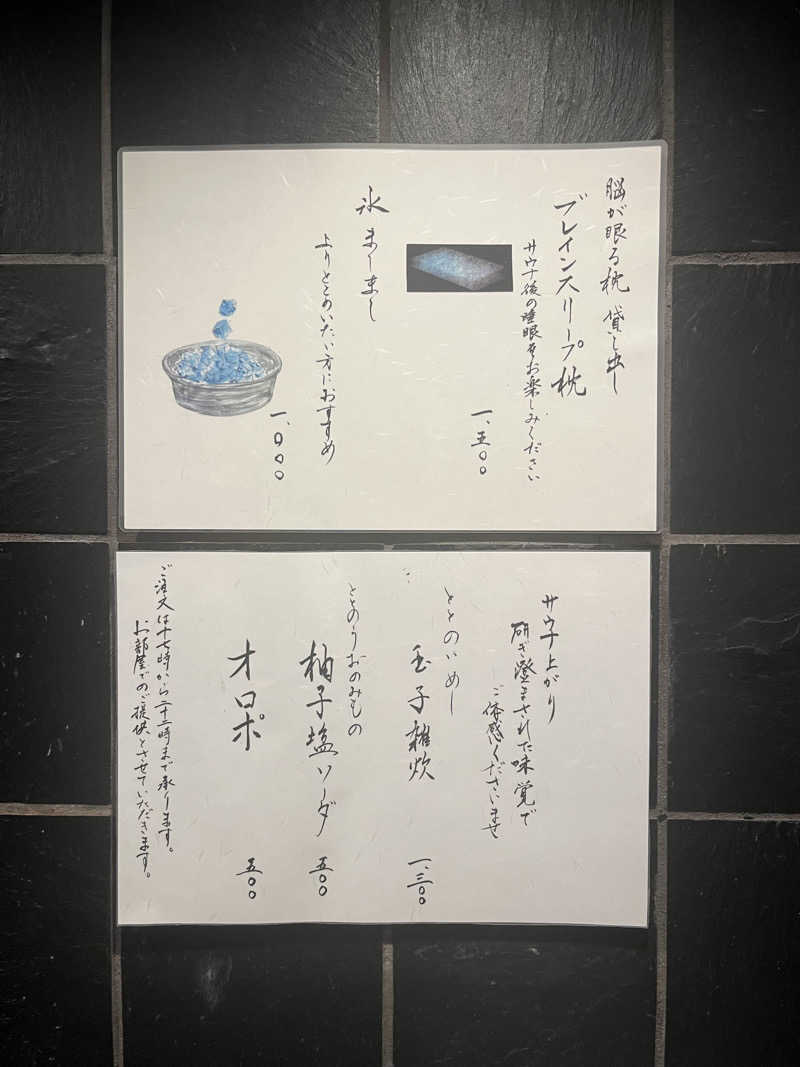 脳が眠る枕 貸し出し
ブレインスリープ枕
サウナ後の睡眠をお楽しみください
一、五〇〇
氷ましまし
よりととのいたい方におすすめ
一、〇〇〇
サウナ上がり
研ぎ澄まされた味覚で
ご体感くださいませ
ととのいめし
玉子雑炊
一、三〇〇
ととのうおのみもの
柚子塩ソーダ
五〇〇
オロポ
五〇〇
ご注文は十七時から二十二時まで承ります。
お部屋でのご提供とさせていただきます。